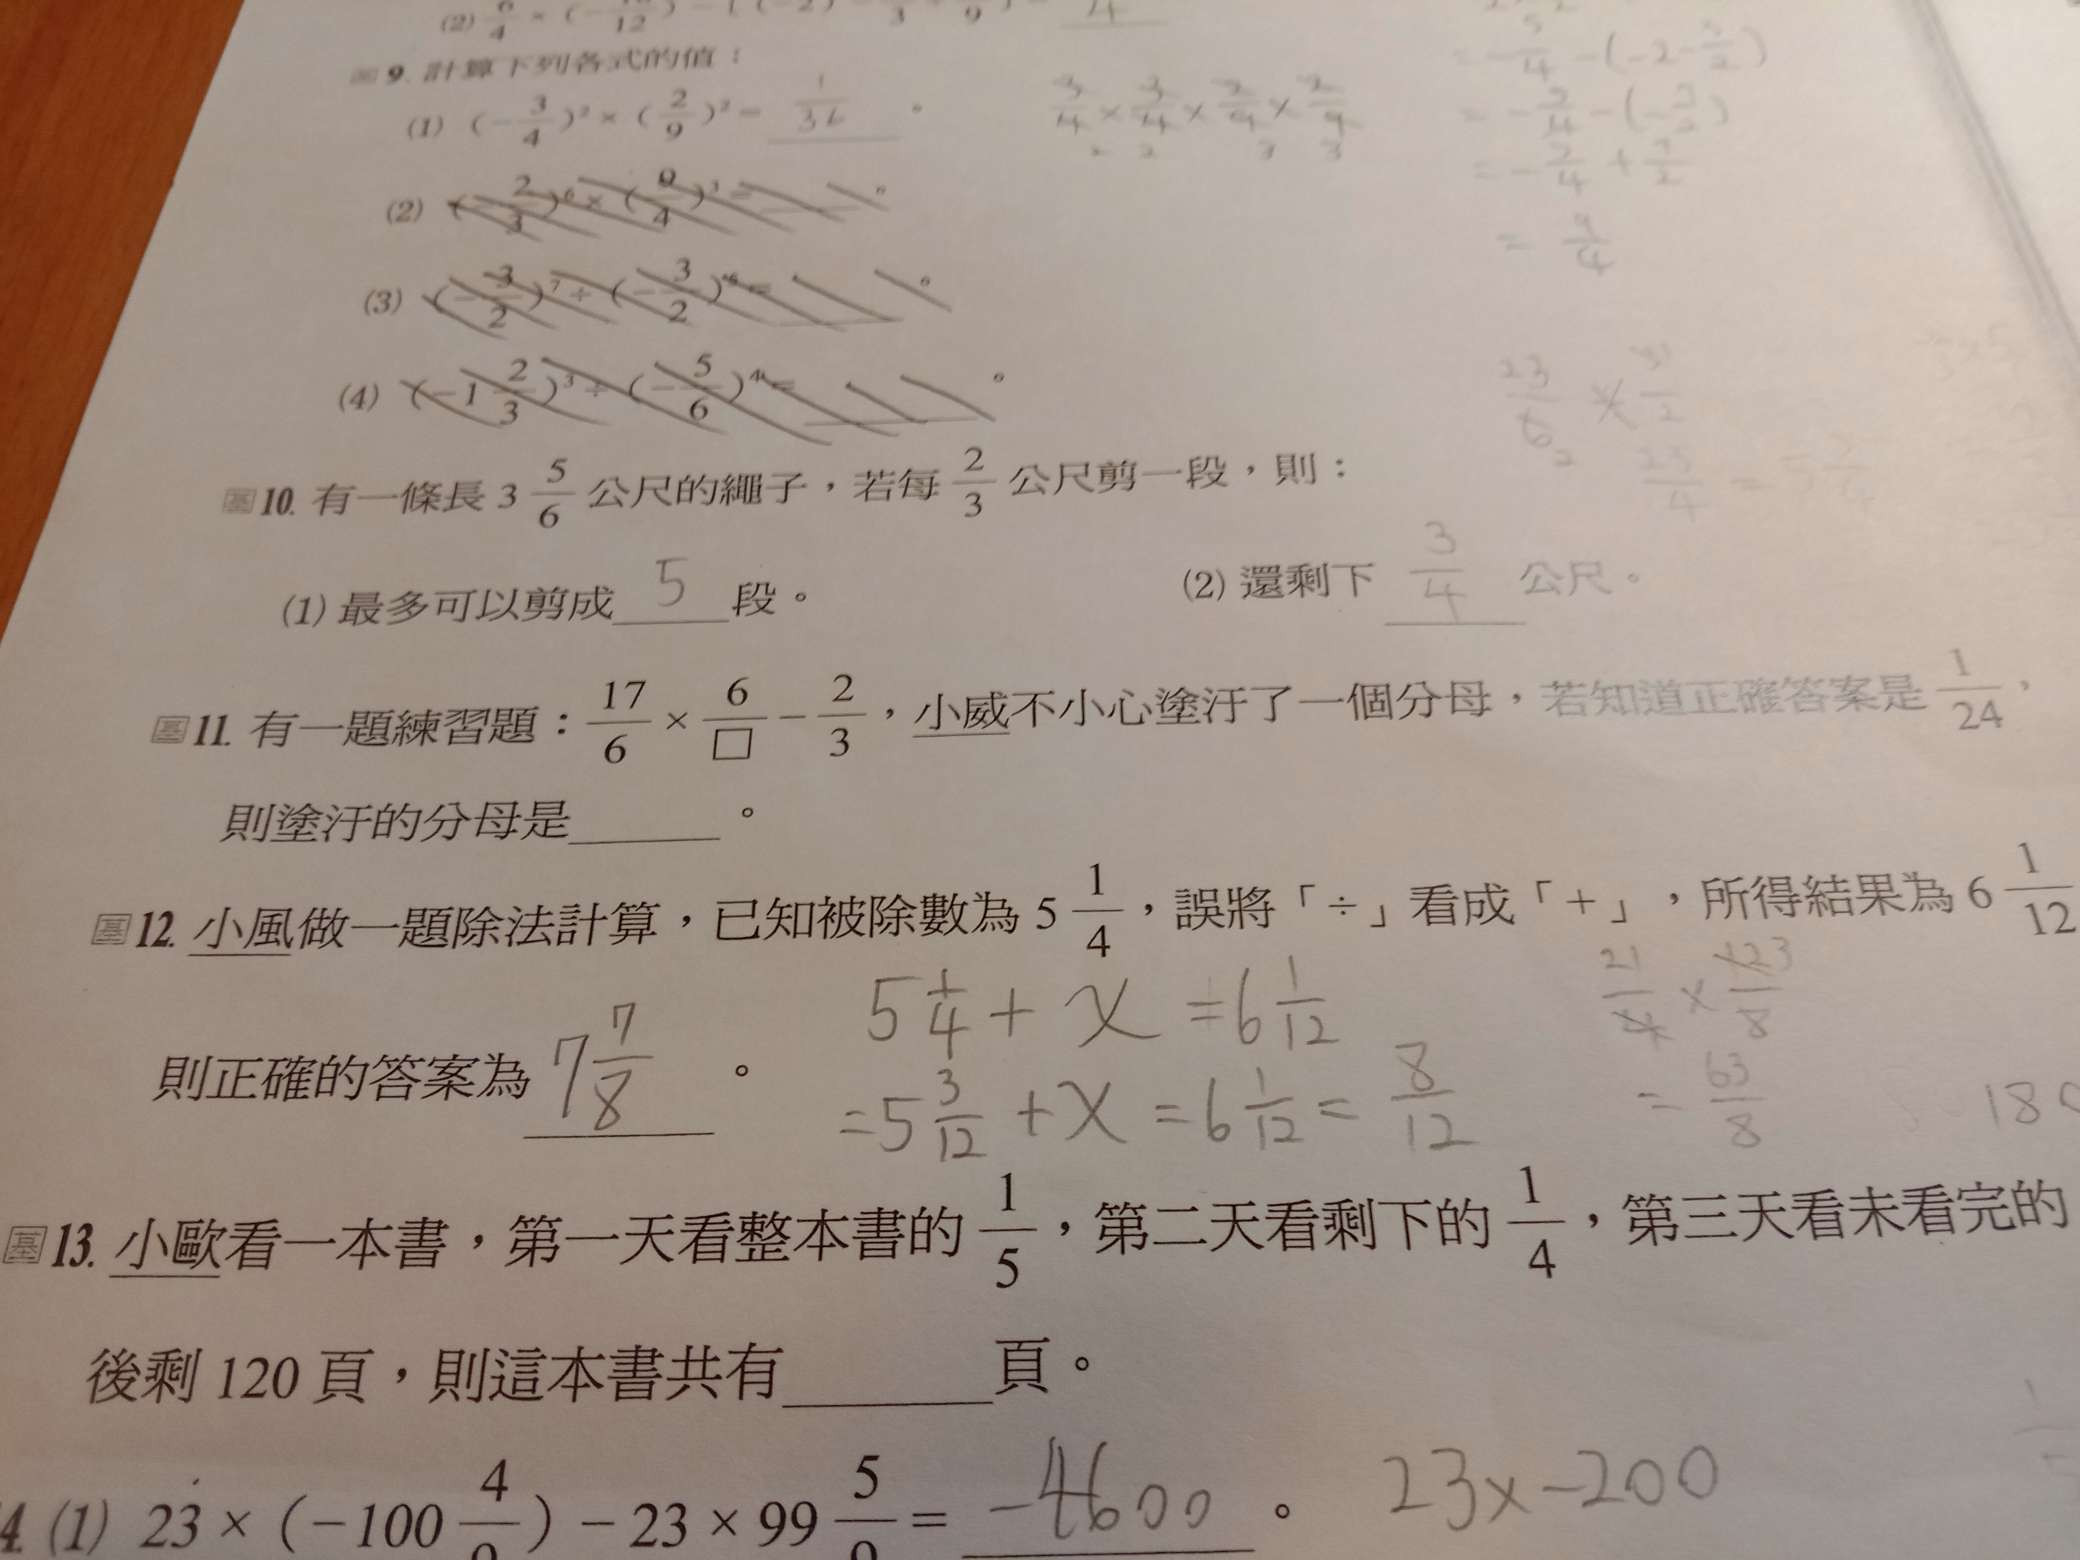 基 9. 計算下列各式的值：
(1) (-3/4)² × (2/9)² = 1/36 。
3/4 × 3/4 × 2/9 × 2/9
(2)
(3) (-3/2)⁷ ÷ (-3/2)⁶ = 。
(4) (-1 2/3)³ ÷ (-5/6)⁴ = 。
= 9/4
23/6 × 3/2
23/4 =
基 10. 有一條長 3 5/6 公尺的繩子，若每 2/3 公尺剪一段，則：
(1) 最多可以剪成 5 段。 (2) 還剩下 3/4 公尺。
基 11. 有一題練習題：17/6 × 6/□ - 2/3，小威不小心塗汙了一個分母，若知道正確答案是 1/24，
則塗汙的分母是 。
基 12. 小風做一題除法計算，已知被除數為 5 1/4，誤將「÷」看成「+」，所得結果為 6 1/12
則正確的答案為 7 7/8 。
5 1/4 + x = 6 1/12
= 5 3/12 + x = 6 1/12 = 8/12
21/4 × 123/8
= 63/8
180
基 13. 小歐看一本書，第一天看整本書的 1/5，第二天看剩下的 1/4，第三天看未看完的
後剩 120 頁，則這本書共有 頁。
4. (1) 23 × (-100 4/9) - 23 × 99 5/9 = -4600 。 23x-200